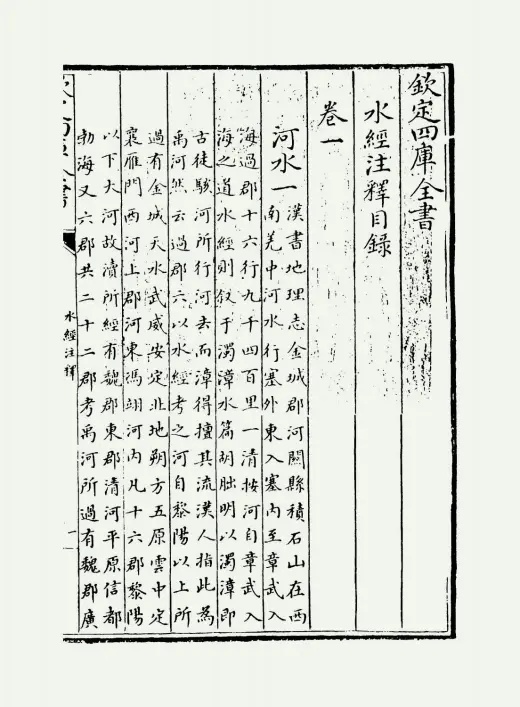 欽定四庫全書
水經注釋目錄
卷一
河水一
漢書地理志金城郡河關縣積石山在西
南羌中河水行塞外東入塞内至章武入
海過郡十六行九千四百里一清按河自章武入
海之道水經則叙于濁漳水篇胡朏明以濁漳即
古徒駭河所行河去而漳得擅其流漢人指此為
禹河然云過郡六以水經考之河自黎陽以上所
過有金城天水武威安定北地朔方五原雲中定
襄雁門西河上郡河東馮翊河内凡十六郡黎陽
以下大河故瀆所經有魏郡東郡清河平原信都
勃海又六郡共二十二郡考禹河所過有魏郡廣
水經注釋
一